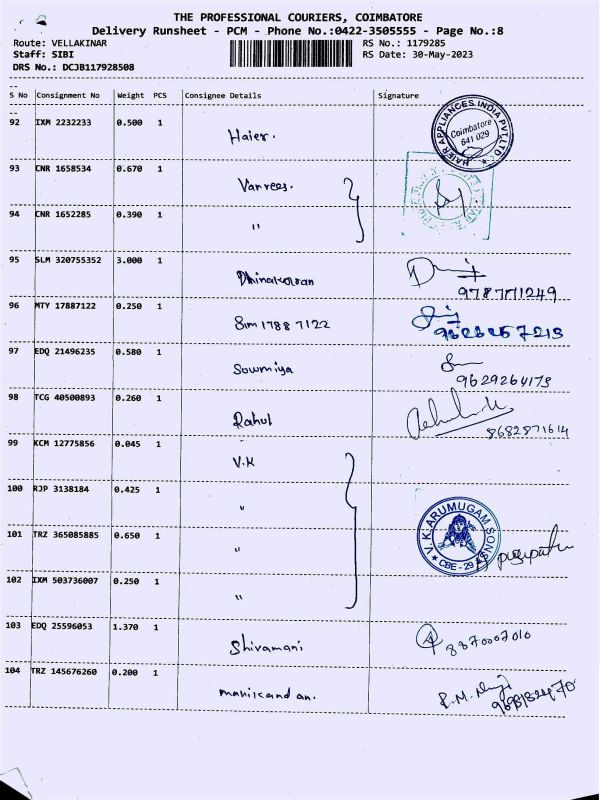 THE PROFESSIONAL COURIERS, COIMBATORE
Delivery Runsheet - PCM - Phone No.:0422-3505555 - Page No.:8
Route: VELLAKINAR RS No.: 1179285
Staff: SIBI RS Date: 30-May-2023
DRS No.: DCJB117928508
--
S No Consignment No Weight PCS Consignee Details Signature
--
92 IXM 2232233 0.500 1 Haier.
HAIER APPLIANCES INDIA PVT. LTD.
Coimbatore
641 029
93 CNR 1658534 0.670 1 Vanrees.
94 CNR 1652285 0.390 1 "
95 SLM 320755352 3.000 1 Dhinakaran
96 MTY 17887122 0.250 1 Sim 17887122
97 EDQ 21496235 0.580 1 Sowmiya
9629264173
98 TCG 40500893 0.260 1 Rahul
8682871614
99 KCM 12775856 0.045 1 V.K
100 RJP 3138184 0.425 1 "
101 TRZ 365085885 0.650 1 "
V.K ARUMUGAM SONS
CBE - 29
102 IXM 503736007 0.250 1 "
103 EDQ 25596053 1.370 1 Shivamani
8870007010
104 TRZ 145676260 0.200 1 manikandan.